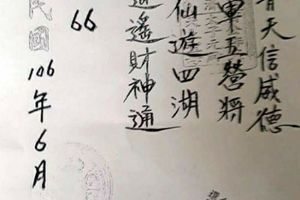 青天信威德
軍五營將
仙遊四湖
逍遙財神通
66
民國
106年6月